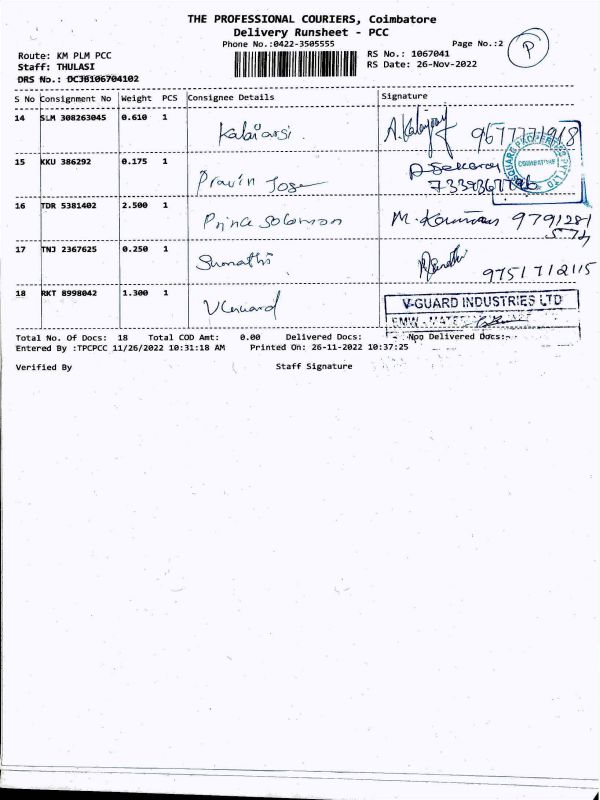 THE PROFESSIONAL COURIERS, Coimbatore
Delivery Runsheet - PCC
Phone No.:0422-3505555
Page No.:2
P
Route: KM PLM PCC
RS No.: 1067041
Staff: THULASI
RS Date: 26-Nov-2022
DRS No.: DCJB106704102
S No Consignment No Weight PCS Consignee Details Signature
14 SLM 308263045 0.610 1 Kalaiarsi
15 KKU 386292 0.175 1 Pravin Jose
COIMBATORE
16 TDR 5381402 2.500 1 Prince Solomon M.
17 TNJ 2367625 0.250 1 Sumathi 9751712115
18 RKT 8998042 1.300 1 VGuard V-GUARD INDUSTRIES LTD
Total No. Of Docs: 18 Total COD Amt: 0.00 Delivered Docs: Non Delivered Docs:
Entered By :TPCPCC 11/26/2022 10:31:18 AM Printed On: 26-11-2022 10:37:25
Verified By Staff Signature